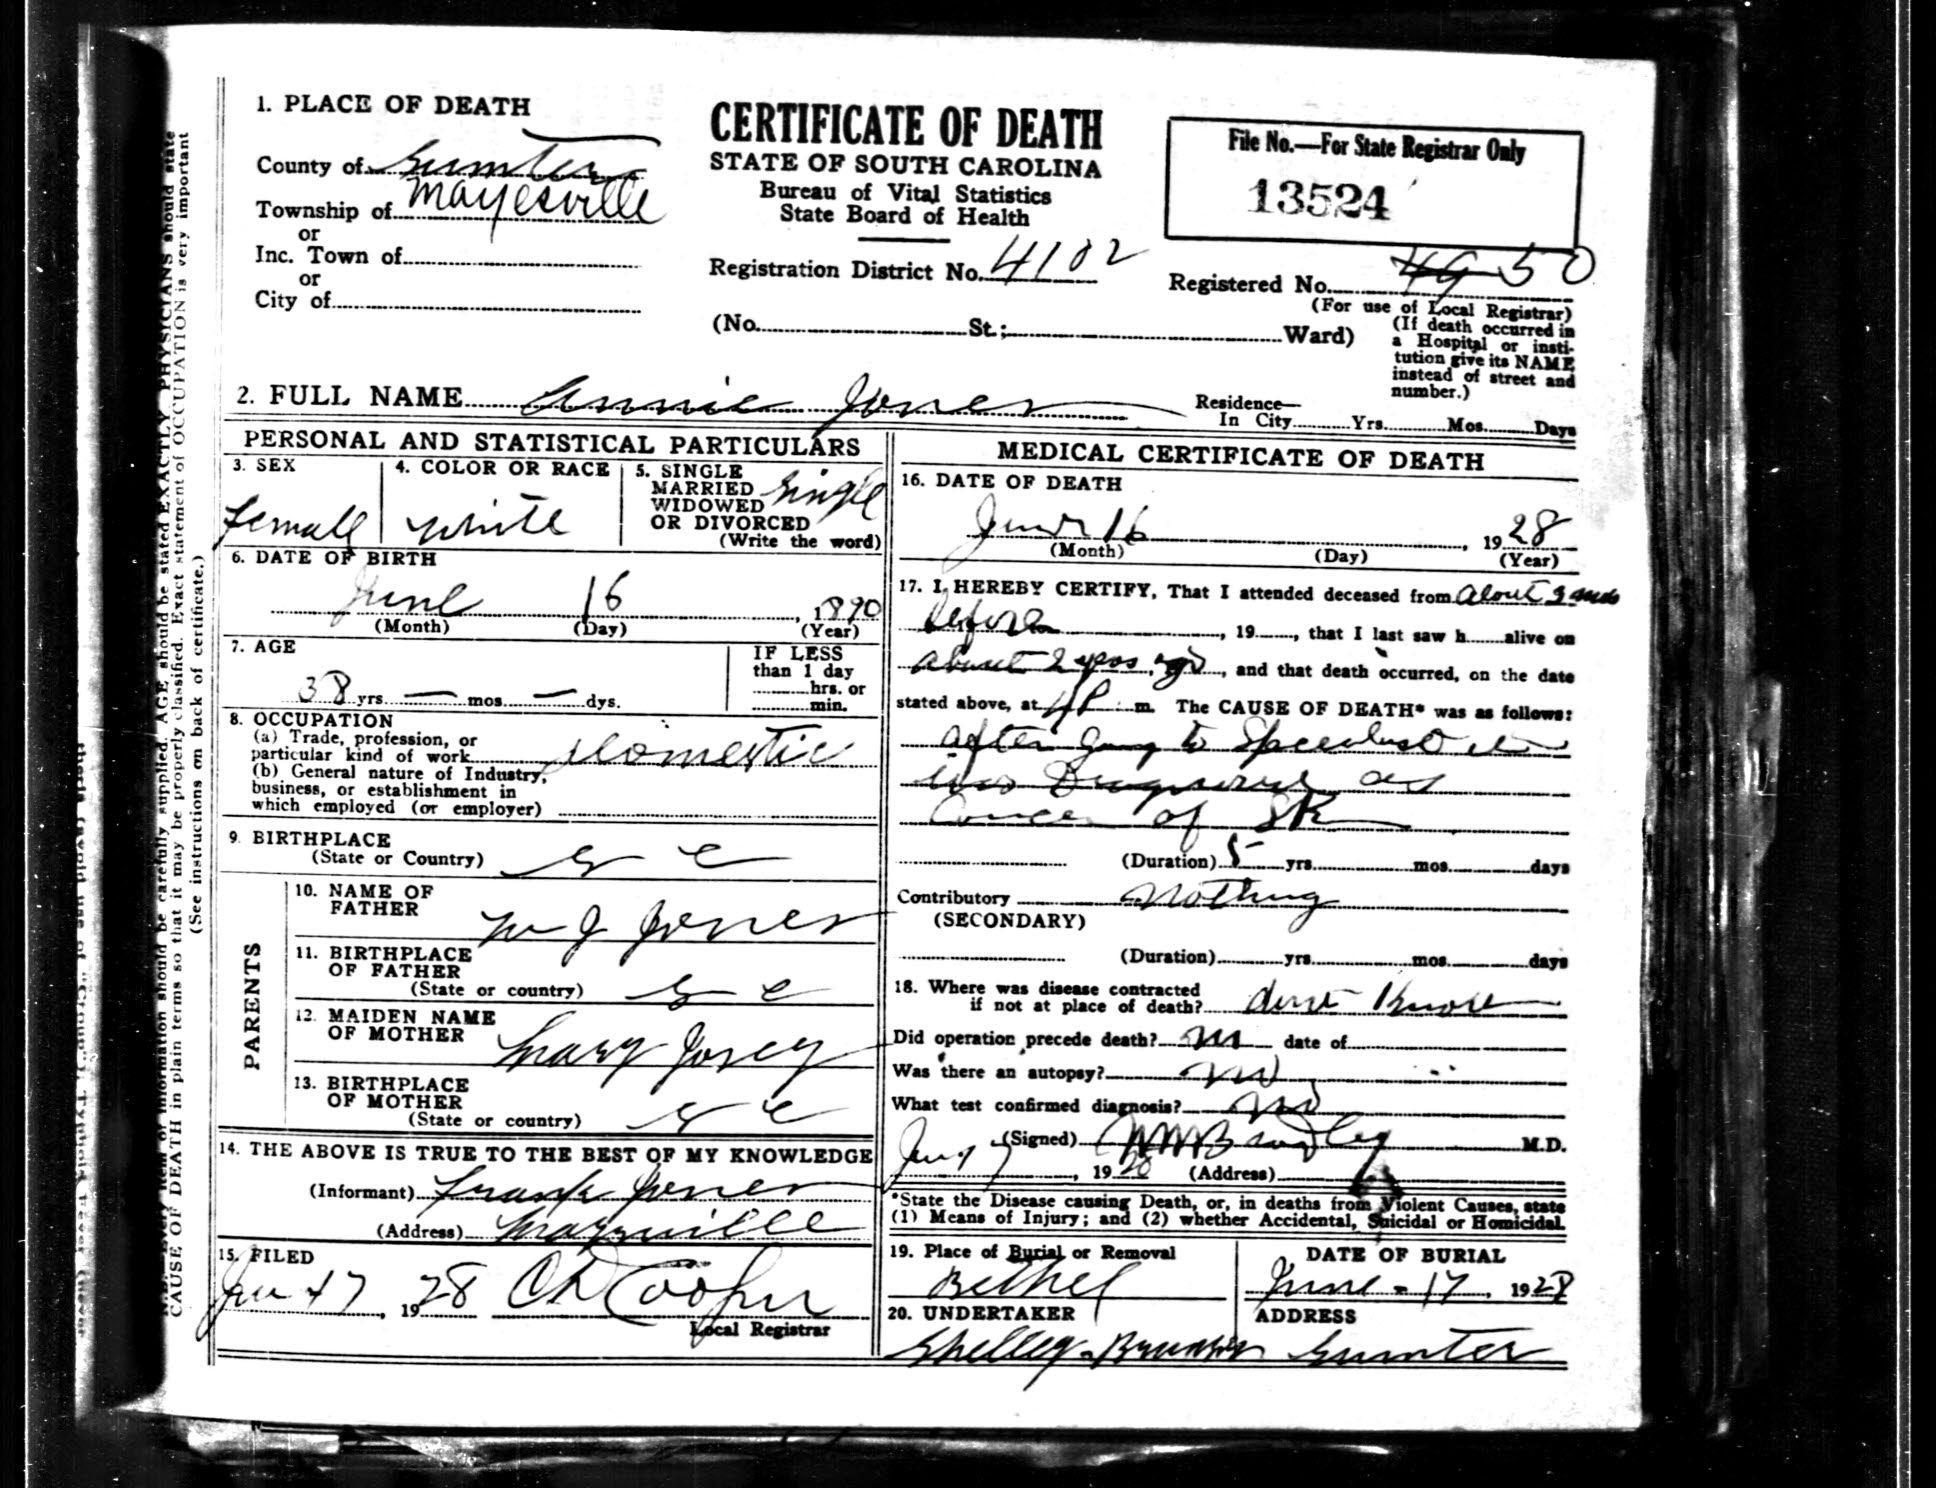 1. PLACE OF DEATH
County of Sumter
Township of Mayesville
or
Inc. Town of
or
City of
CERTIFICATE OF DEATH
STATE OF SOUTH CAROLINA
Bureau of Vital Statistics
State Board of Health
Registration District No. 4102
(No. St.; Ward)
File No.—For State Registrar Only
13524
Registered No. 49 50
(For use of Local Registrar)
(If death occurred in
a Hospital or insti-
tution give its NAME
instead of street and
number.)
2. FULL NAME Annie Jones
Residence—
In City Yrs. Mos. Days
PERSONAL AND STATISTICAL PARTICULARS
3. SEX
female
4. COLOR OR RACE
white
5. SINGLE
MARRIED
WIDOWED
OR DIVORCED
(Write the word)
single
6. DATE OF BIRTH
June 16, 1890
(Month) (Day) (Year)
7. AGE
38 yrs. — mos. — dys.
IF LESS
than 1 day
hrs. or
min.
8. OCCUPATION
(a) Trade, profession, or
particular kind of work Domestic
(b) General nature of Industry,
business, or establishment in
which employed (or employer)
9. BIRTHPLACE
(State or Country) S C
PARENTS
10. NAME OF
FATHER
W J Jones
11. BIRTHPLACE
OF FATHER
(State or country) S C
12. MAIDEN NAME
OF MOTHER
Mary Josey
13. BIRTHPLACE
OF MOTHER
(State or country) S C
14. THE ABOVE IS TRUE TO THE BEST OF MY KNOWLEDGE
(Informant) Frank Jones
(Address) Mayesville
15. FILED
17, 1928 Cooper
Local Registrar
MEDICAL CERTIFICATE OF DEATH
16. DATE OF DEATH
June 16, 1928
(Month) (Day) (Year)
17. I HEREBY CERTIFY, That I attended deceased from About
before, 19, that I last saw h alive on
about 2 years ago, and that death occurred, on the date
stated above, at 4 P m. The CAUSE OF DEATH* was as follows:
after going to Specialist it
was Diagnosed as
Cancer of
(Duration) 5 yrs. mos. days
Contributory Nothing
(SECONDARY)
(Duration) yrs. mos. days
18. Where was disease contracted
if not at place of death? dont Know
Did operation precede death? no date of
Was there an autopsy? no
What test confirmed diagnosis? no
(Signed) M.D.
, 1928 (Address)
*State the Disease causing Death, or, in deaths from Violent Causes, state
(1) Means of Injury; and (2) whether Accidental, Suicidal or Homicidal.
19. Place of Burial or Removal
Bethel
DATE OF BURIAL
June - 17, 1928
20. UNDERTAKER
Shelley-Brunson
ADDRESS
Sumter
CAUSE OF DEATH in plain terms so that it may be properly classified. Exact statement of OCCUPATION is very important
(See instructions on back of certificate.)
information should be carefully supplied. AGE should be stated EXACTLY. PHYSICIANS should state